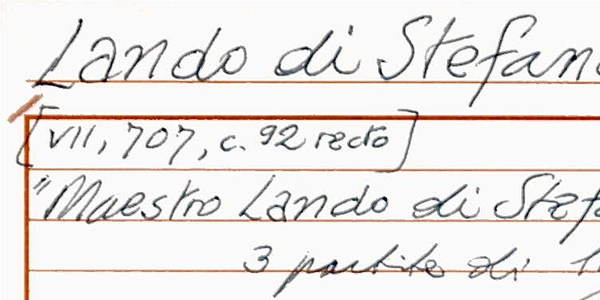 Lando di Stefan
[VII, 707, c. 92 recto]
"Maestro Lando di Stef
3 partite di